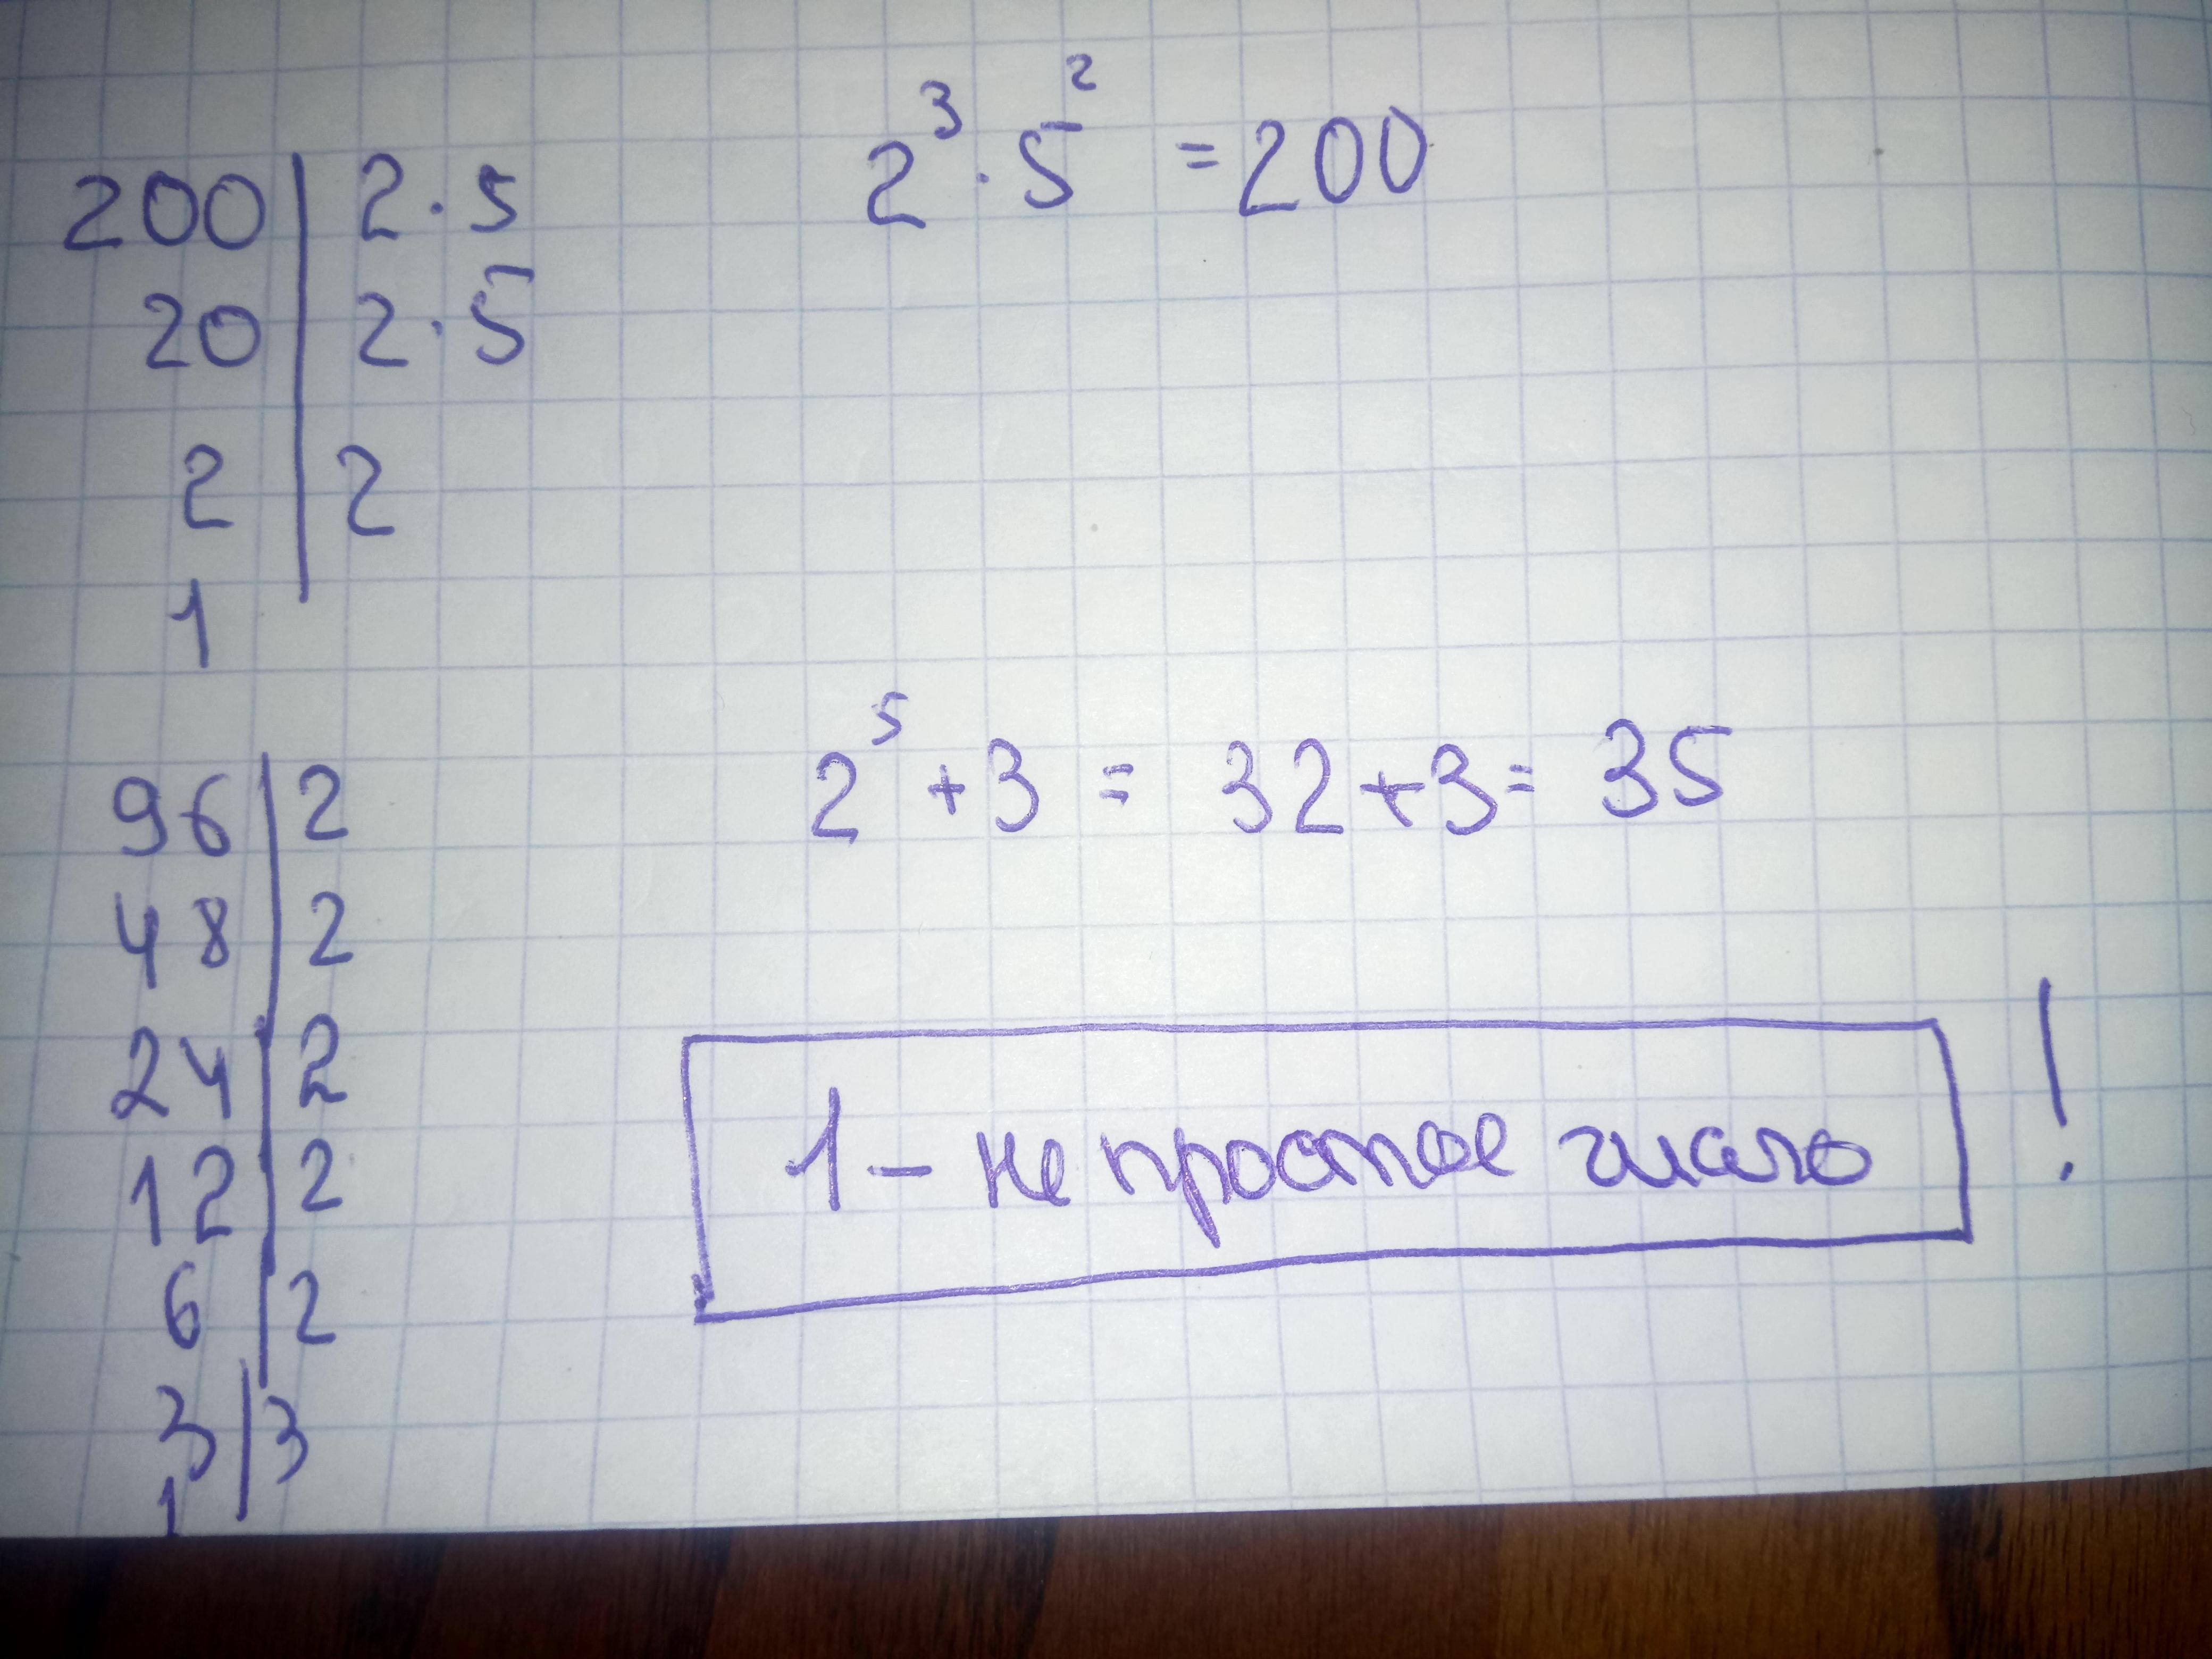 200 | 2·5
20 | 2·5
2 | 2
1
2³·5² = 200
96 | 2
48 | 2
24 | 2
12 | 2
6 | 2
3 | 3
1
2⁵+3 = 32+3= 35
1 – не простое число !